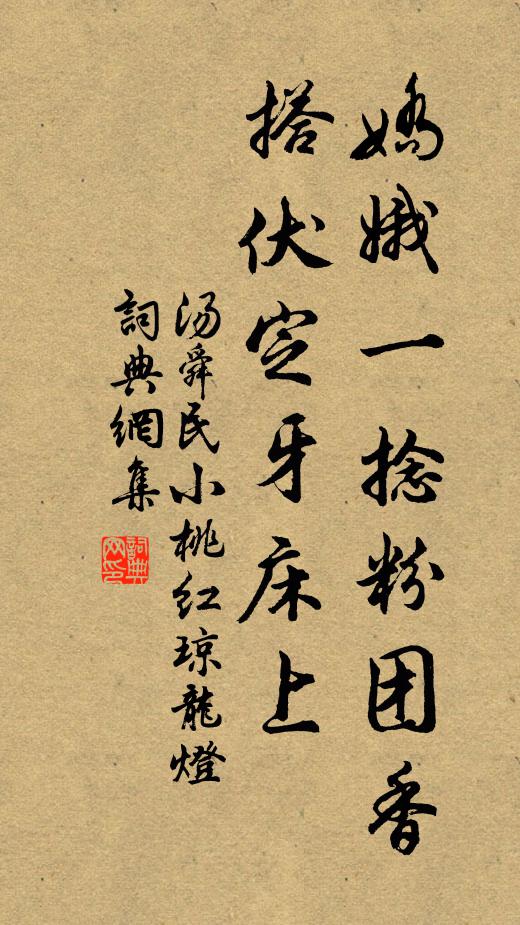 娇娥一捻粉团香
搭伏定牙床上
汤舜民小桃红琼龍燈
詞典網集
詞典网印